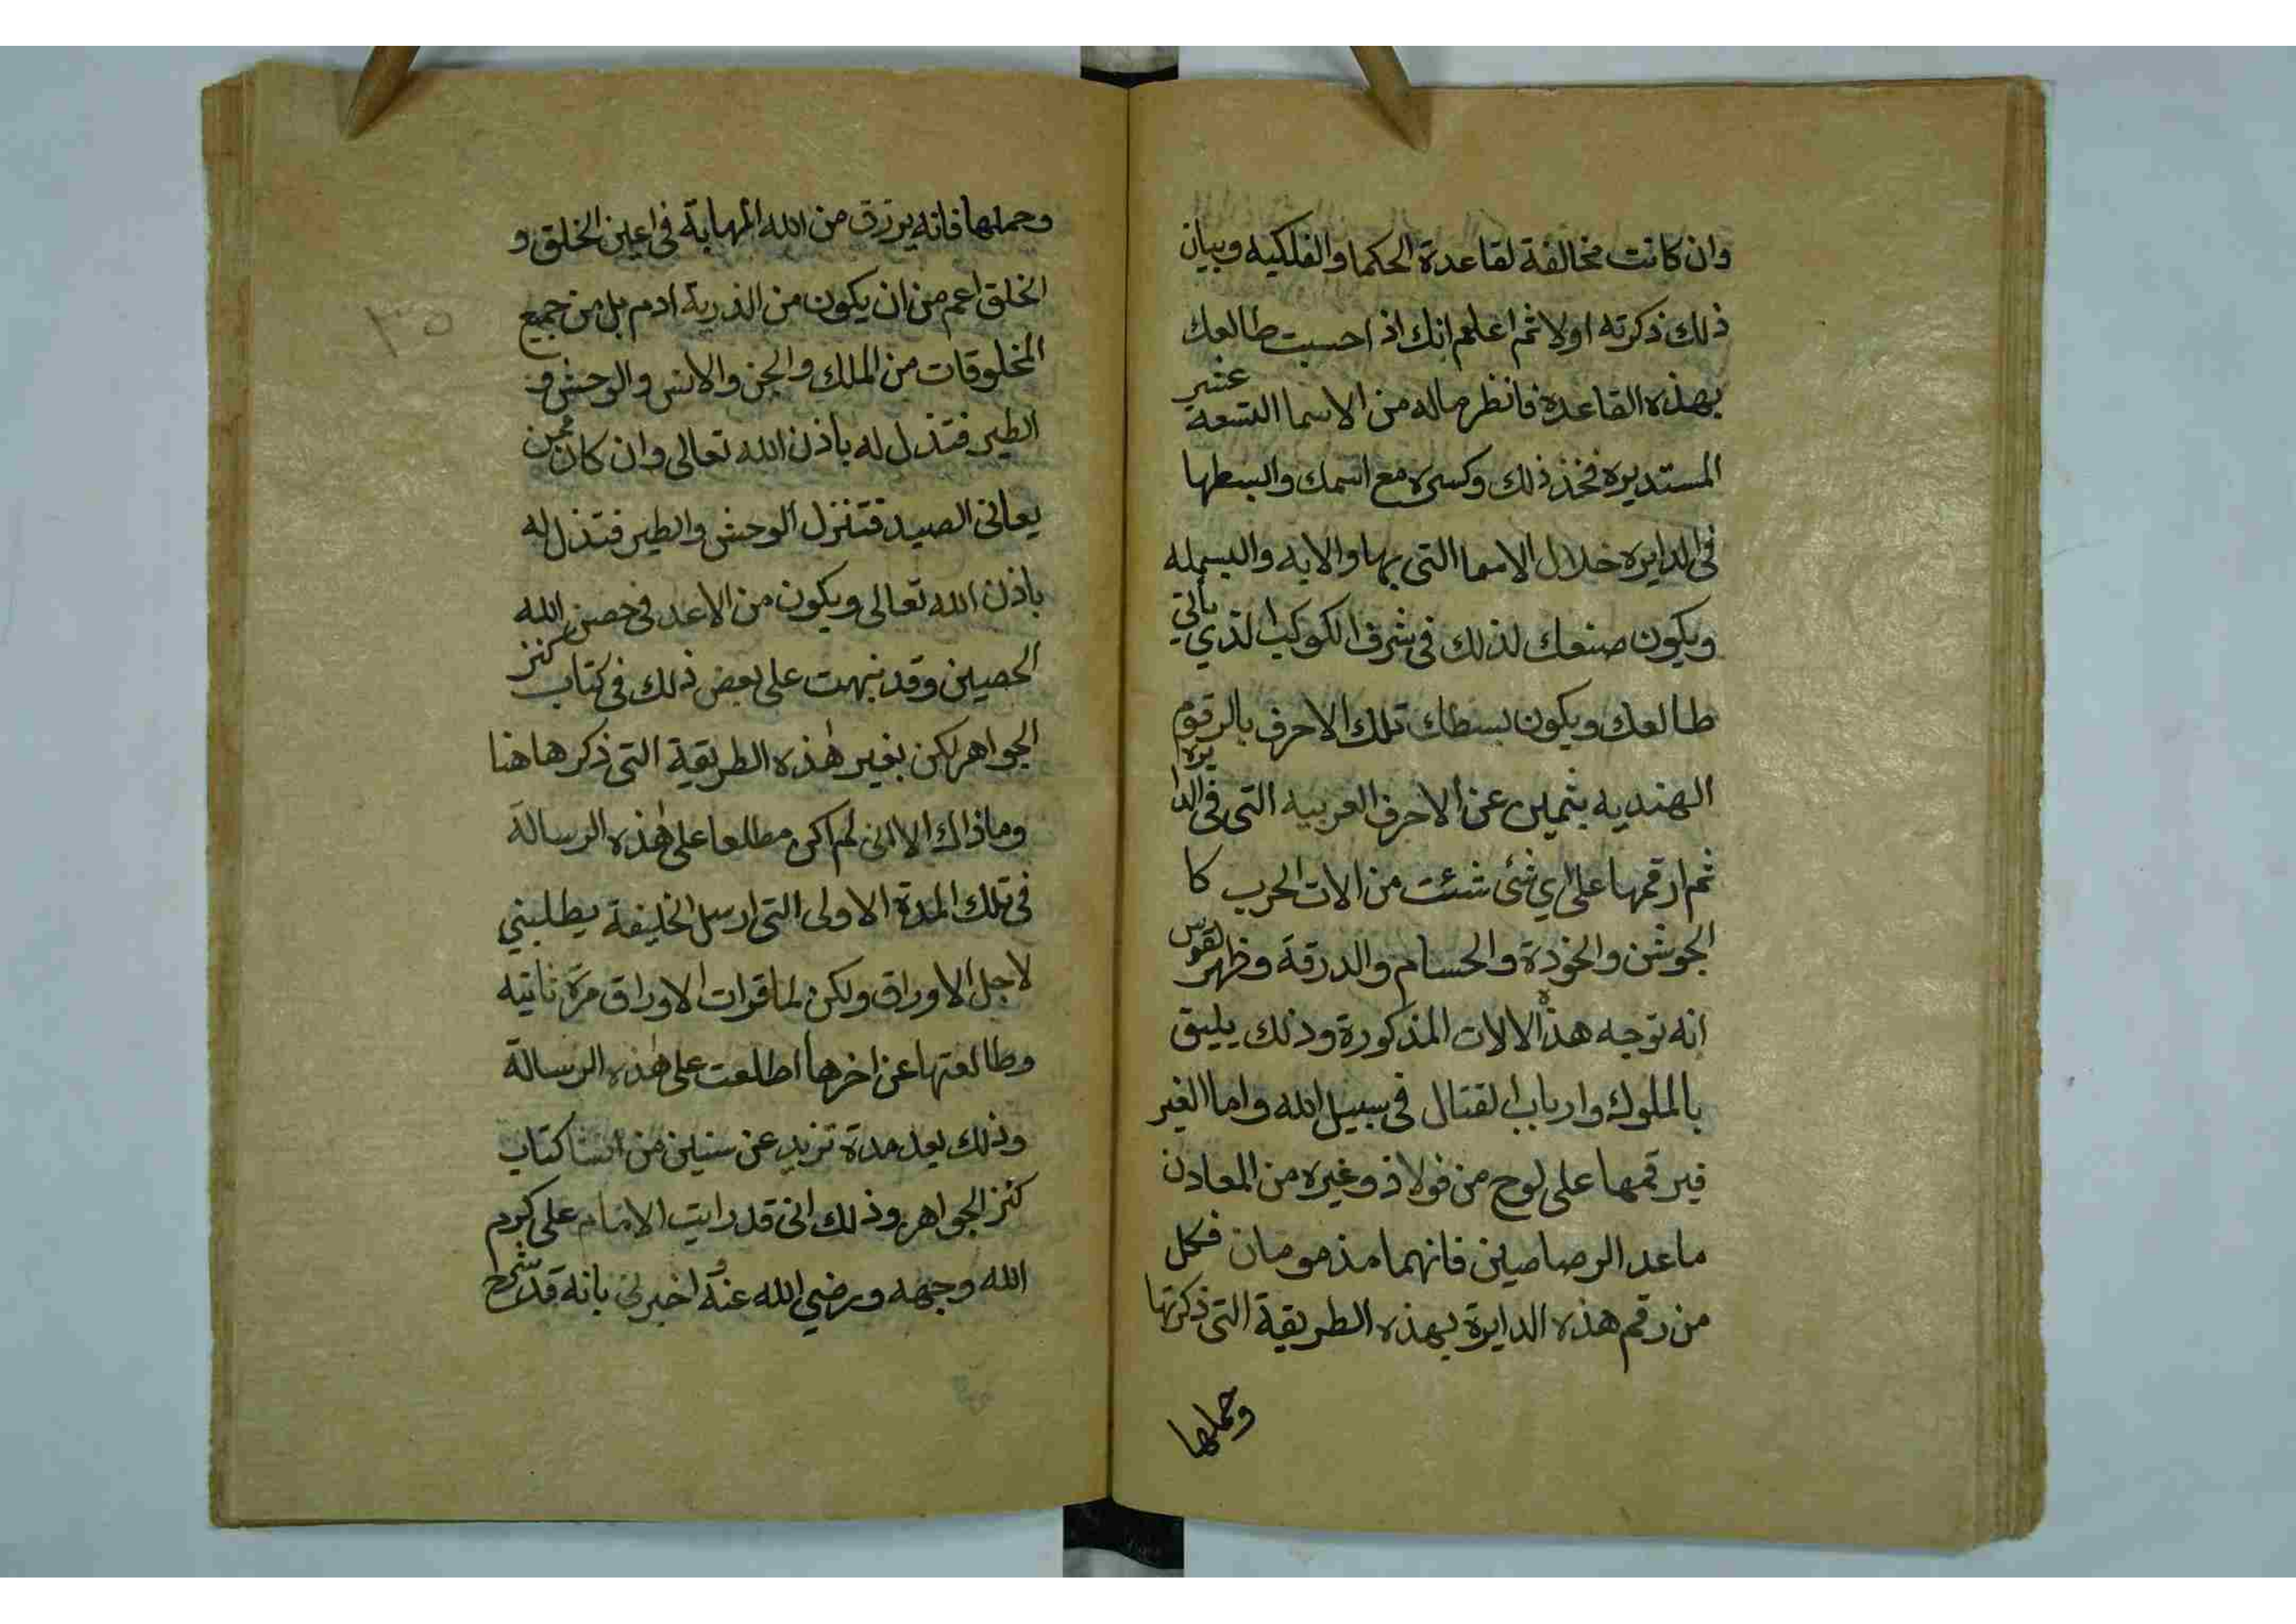 وان كانت مخالفة لقاعدة الحكما والفلكيه وبيان
ذلك ذكرته اولا ثم اعلم انك اذ احسبت طالعك
بهذه القاعدة فانظر ماله من الاسما التسعة عشر
المستديره فخذ ذلك وكسره مع اسمك والبسطها
فى الدايره خلال الاسما التى بها والايه والبسمله
ويكون صنعك لذلك فى شرف الكوكب الذي يأتي
طالعك ويكون بسطك تلك الاحرف بالرقوم
الهنديه بثمين عن الاحرف العربيه التى فى الدايره
ثم ارقمها على اي شئ شئت من الات الحرب كا
الجوشن والخوذة والحسام والدرقة وظهر لقوس
انه توجه هذه الالات المذكورة وذلك يليق
بالملوك وارباب القتال فى سبيل الله واما الغير
فيرقمها على لوح من فولاذ وغيره من المعادن
ماعد الرصاصين فانهما مذمومان فكل
من رقم هذه الدايرة بهذه الطريقة التى ذكرتها
وحملها
وحملها فانه يرزق من الله المهابة فى اعين الخلق و
الخلق اعم من ان يكون من الذرية ادم بل من جميع
المخلوقات من الملك والجن والانس والوحش و
الطير فتذل له باذن الله تعالى وان كان ممن
يعانى الصيد فتنزل الوحش والطير فتذل له
باذن الله تعالى ويكون من الاعد فى حصن الله
الحصين وقد نبهت على بعض ذلك فى كتاب كنز
الجواهر لكن بغير هذه الطريقة التى ذكرها هنا
وماذاك الا انى لم اكن مطلعا على هذه الرسالة
فى تلك المدة الاولى التى ارسل الخليفة يطلبني
لاجل الاوراق ولكن لما قرات الاوراق مرة ثانيه
وطالعتها عن اخرها اطلعت على هذه الرسالة
وذلك بعد مدة تزيد عن سنين من انشا كتاب
كنز الجواهر وذلك انى قد رايت الامام على كرم
الله وجهه ورضي الله عنه اخبرنى بانه قد شرح
٣٥